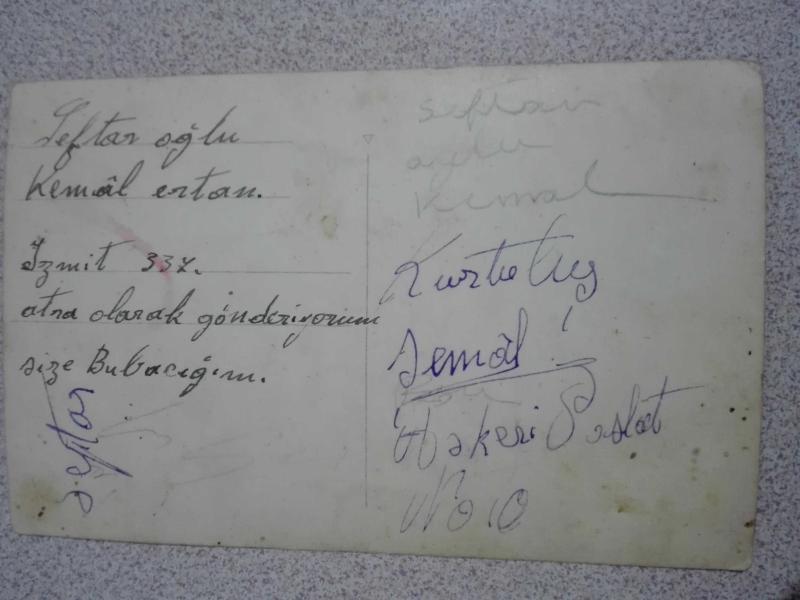 Seftar oğlu
Kemâl ertan.
İzmit 337.
atra olarak gönderiyorum
size Bubacığım.
seftar
seftar
oğlu
Kemal
Kurtuluş
Semâl !
Askeri Poslat
No 10